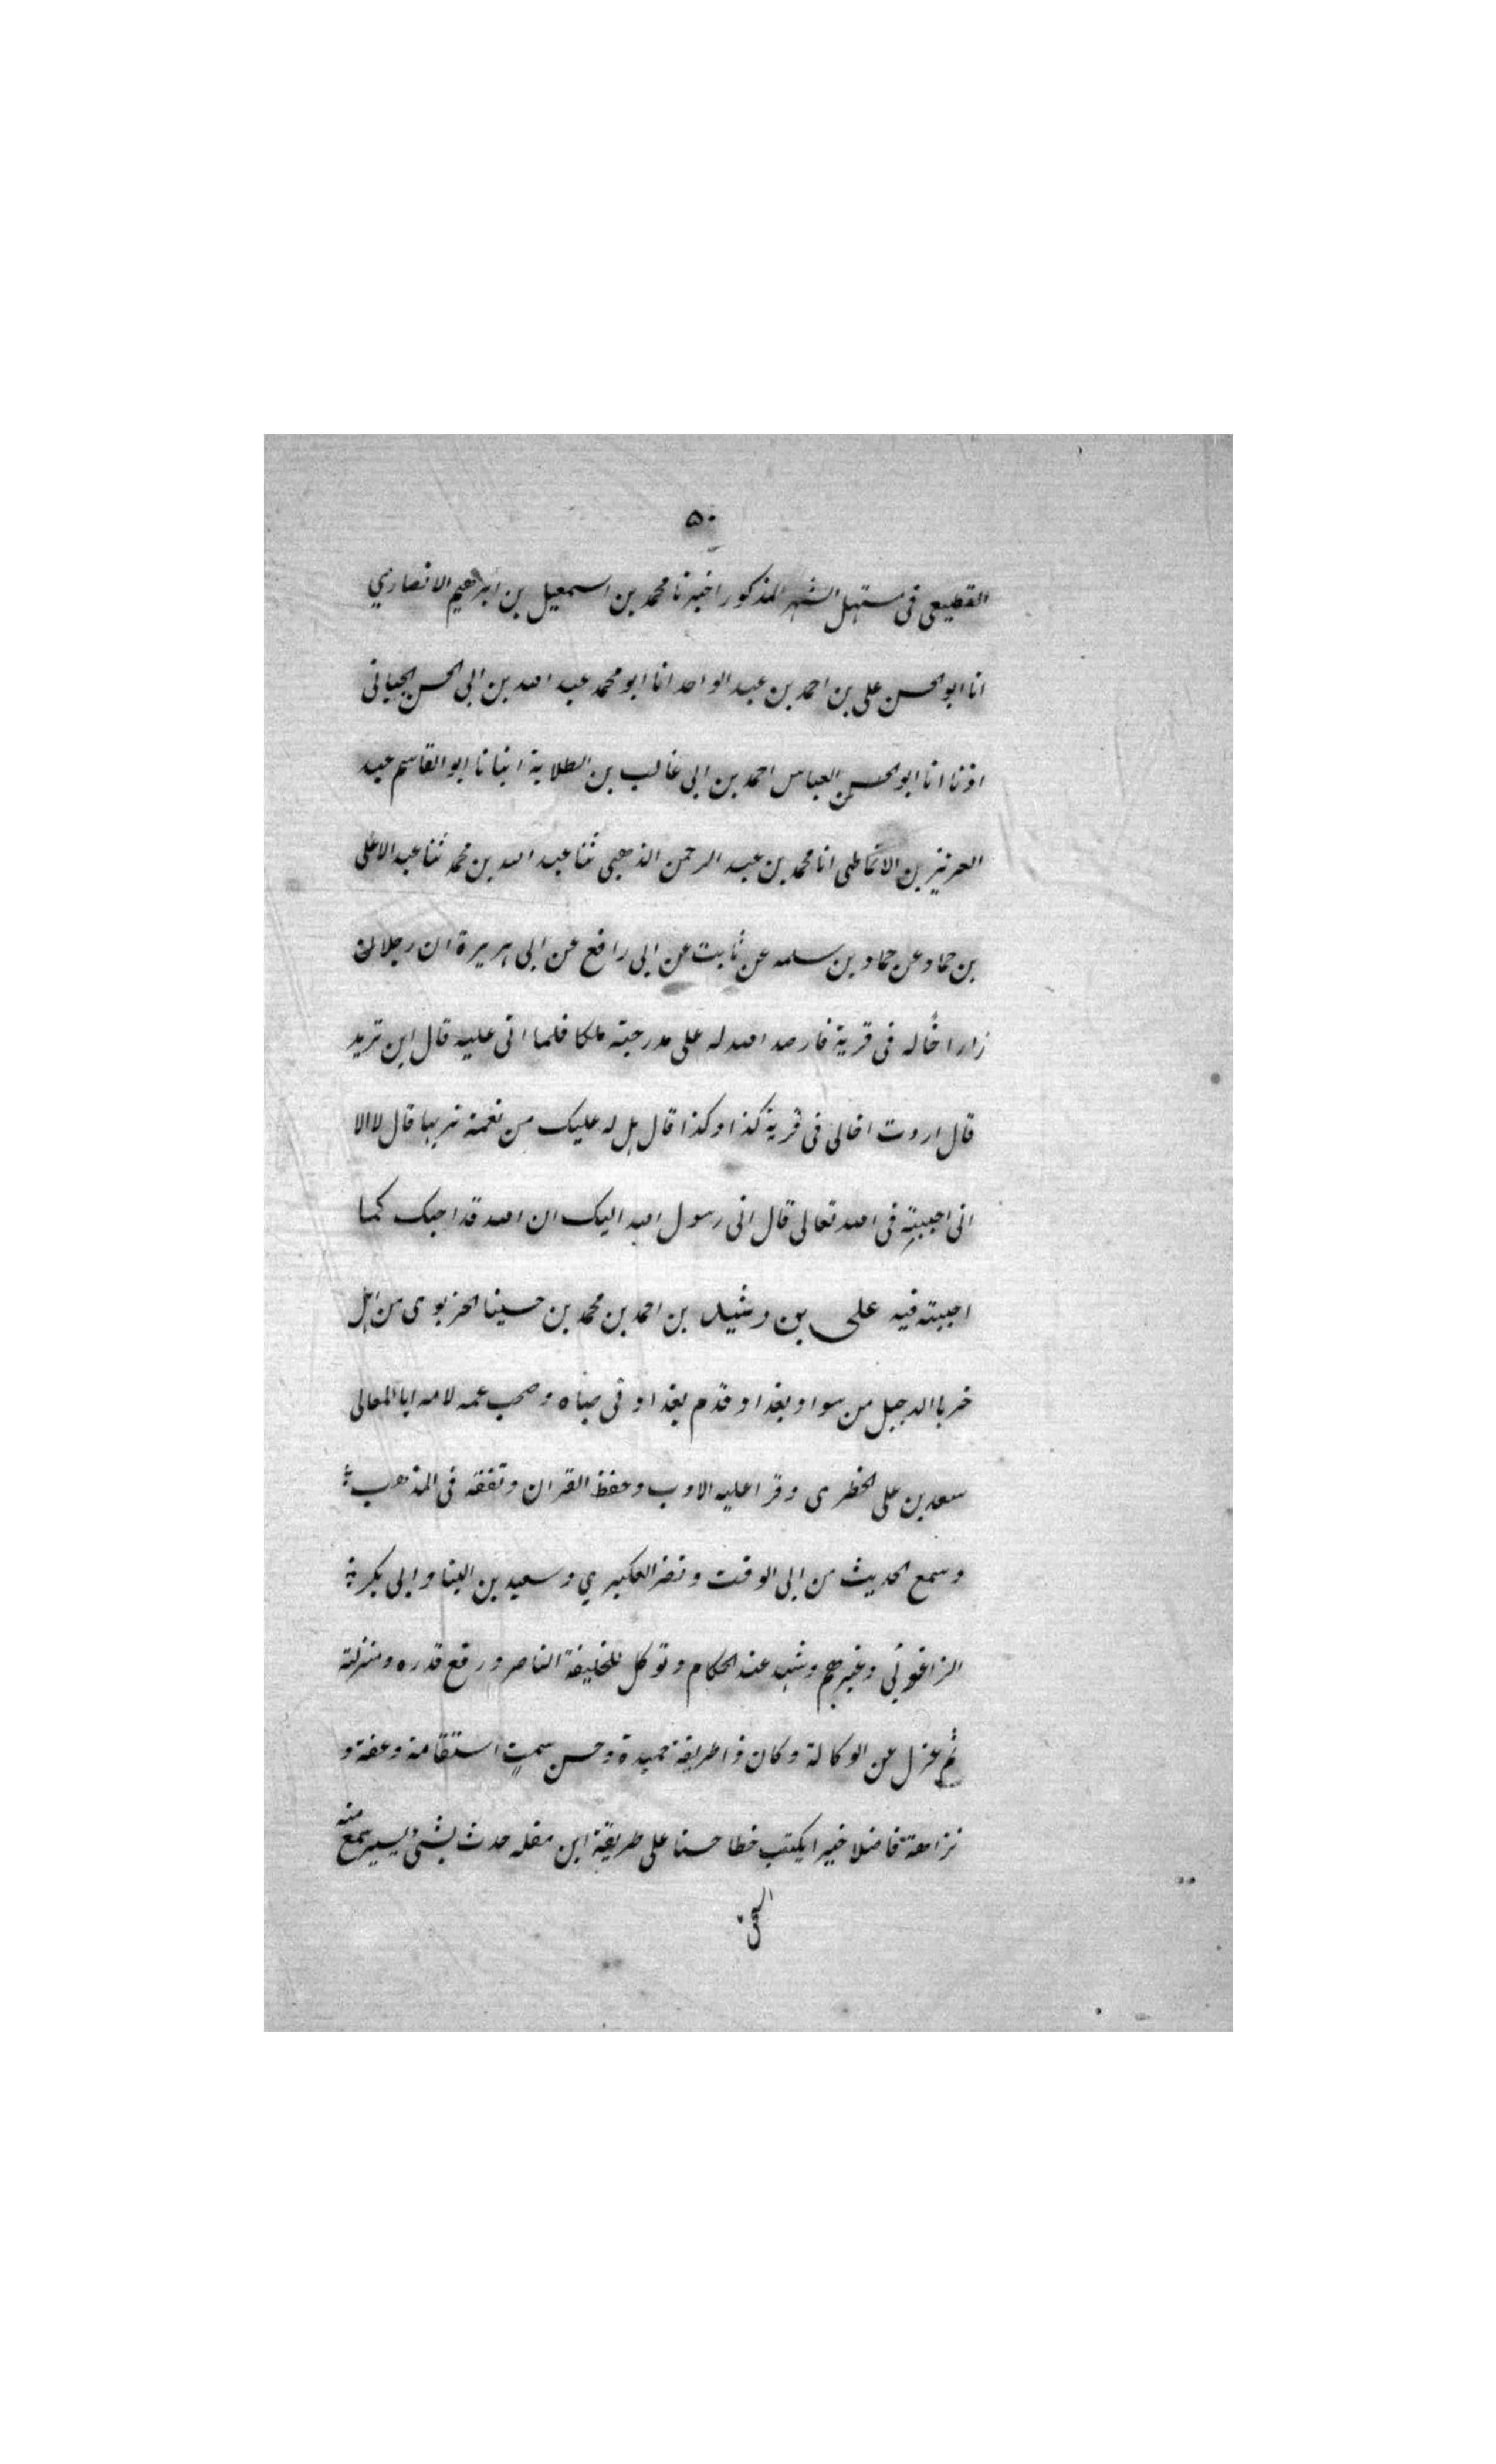 ٥٠
القطیعی فی مستهل الشهر المذکور اخبرنا محمد بن اسمعیل بن ابرهیم الانصاري
انا ابو الحسن علی بن احمد بن عبد الواحد انا ابو محمد عبد الله بن ابی الحسن الجبائی
اذنا انا ابو الحسن العباس احمد بن ابی غالب بن الطلایة انبانا ابو القاسم عبد
العزیز بن الانماطی انا محمد بن عبد الرحمن الذهبی ثنا عبد الله بن محمد ثنا عبد الاعلی
بن حماد عن حماد بن سلمه عن ثابت عن ابی رافع عن ابی هریرة ان رجلا
زار اخًا له فی قریة فارصد الله له علی مدرجته ملکا فلما اتی علیه قال این ترید
قال اردت اخالی فی قریة کذا وکذا قال هل له علیک من نعمة تربها قال لا الا
انی احببته فی الله تعالی قال انی رسول الله الیک ان الله قد احبک کما
احببته فیه علی بن رشید بن احمد بن محمد بن حسینا الحربوی من اهل
خربا الدجیل من سواد بغداد قدم بغداد فی صباه وصحب عمه لامه ابا المعالی
سعد بن علی الخطری وقرا علیه الادب وحفظ القران وتفقه فی المذهب
وسمع الحدیث من ابی الوقت ونصر العکبري وسعید بن البنا وابی بکر بن
الزاغونی وغیرهم وشهد عند الحکام وتوکل للخلیفة الناصر ورفع قدره ومنزلته
ثم عزل عن الوکالة وکان ذا طریقة حمیدة وحسن سمتٍ استقامة وعفة و
نزاهة فاضلا خیرا یکتب خطا حسنا علی طریقة ابن مقله حدث بشئ یسیر سمع منه